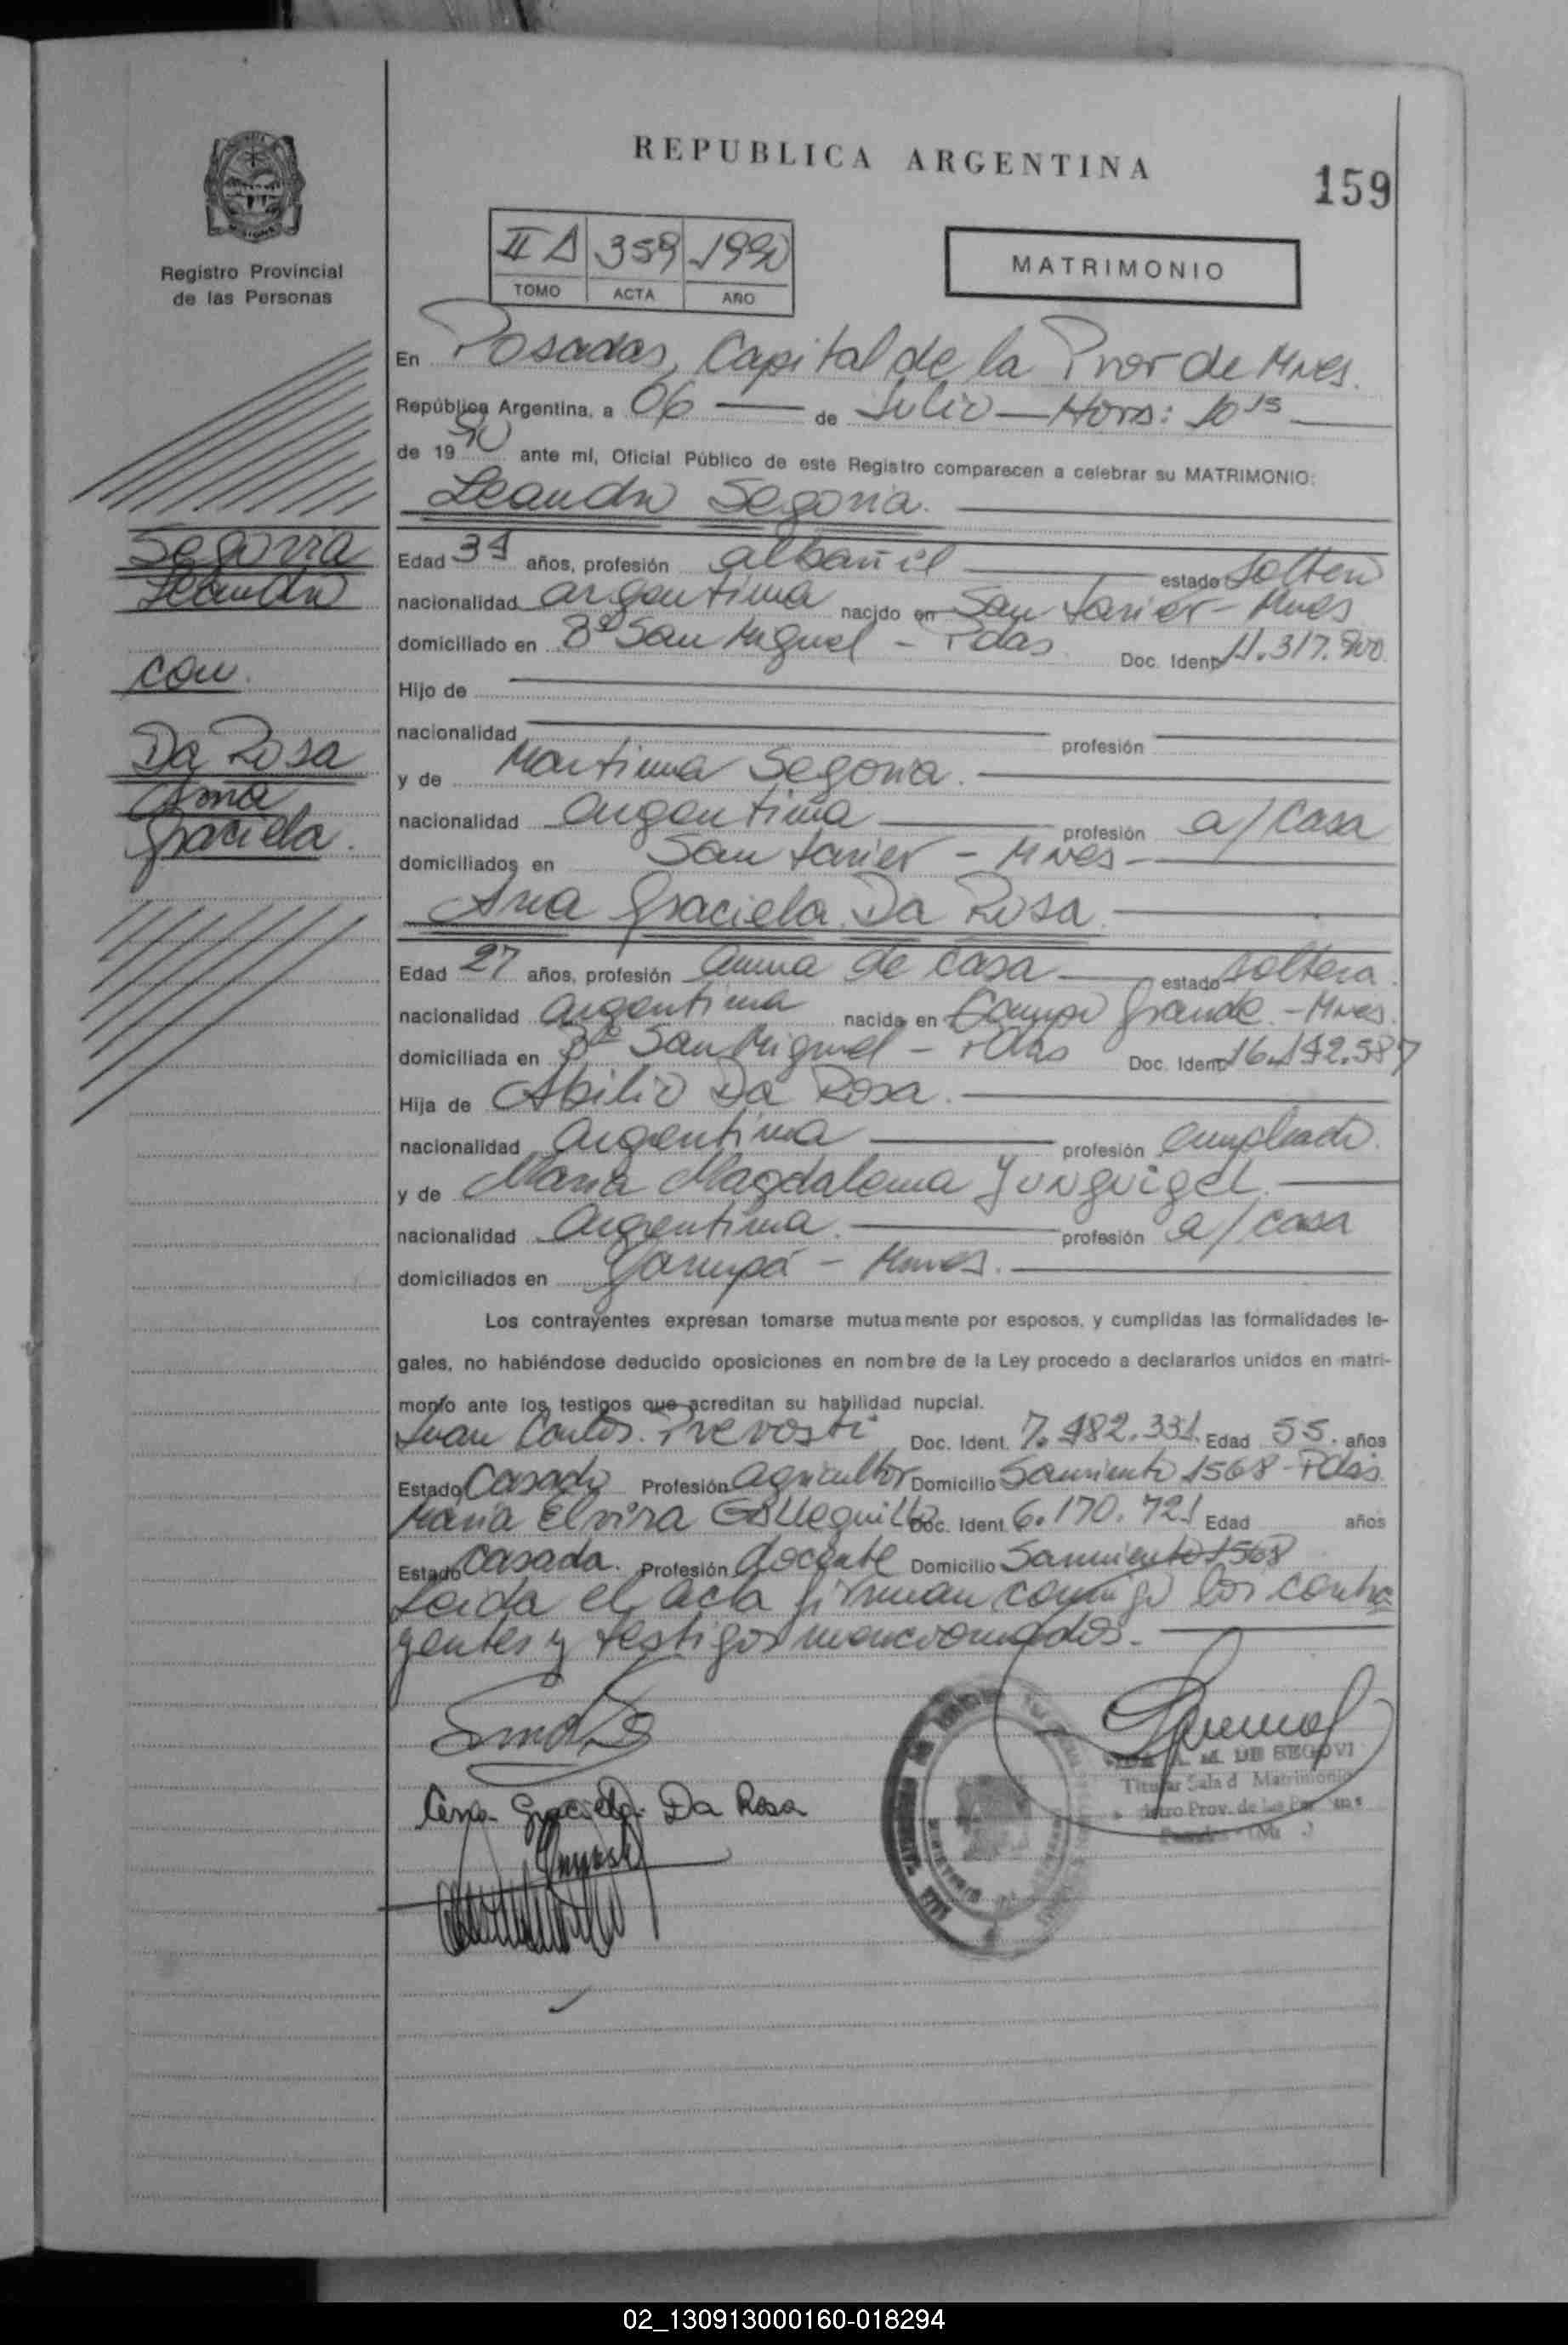 REPUBLICA ARGENTINA
159
Registro Provincial
de las Personas
II A 359 1990
TOMO ACTA AÑO
MATRIMONIO
En Posadas, Capital de la Prov de Mnes.
República Argentina, a 06 de Julio — Hora: 10 15
de 19 90 ante mí, Oficial Público de este Registro comparecen a celebrar su MATRIMONIO:
Leandro Segovia.
Segovia
Leandro
con
Da Rosa
Ana
Graciela.
Edad 34 años, profesión albañil estado soltero
nacionalidad argentina nacido en San Javier - Mnes
domiciliado en Bº San Miguel - Pdas Doc. Ident. 11.317.900
Hijo de
nacionalidad profesión
y de Martina Segovia.
nacionalidad argentina profesión a/casa
domiciliados en San Javier - Mnes -
Ana Graciela Da Rosa.
Edad 27 años, profesión ama de casa estado soltera
nacionalidad argentina nacida en Campo Grande - Mnes
domiciliada en Bº San Miguel - Pdas Doc. Ident. 16.142.587
Hija de Abilio Da Rosa.
nacionalidad argentina profesión empleado.
y de Maria Magdalena Junguigel.
nacionalidad argentina. profesión a/casa
domiciliados en Garupá - Mnes.
Los contrayentes expresan tomarse mutuamente por esposos, y cumplidas las formalidades le-
gales, no habiéndose deducido oposiciones en nombre de la Ley procedo a declararlos unidos en matri-
monio ante los testigos que acreditan su habilidad nupcial.
Juan Carlos Prevosti Doc. Ident. 7.482.331. Edad 55. años
Estado Casado Profesión agricultor Domicilio Sarmiento 1568 - Pdas
Maria Elvira Doc. Ident. 6.170.721 Edad años
Estado casada. Profesión docente Domicilio Sarmiento 1568
Leida el acta firman conmigo los contra
yentes y testigos mencionados.
Ana Graciela Da Rosa
A. M. DE SEGOVI
Titular Sala d Matrimonio
02_130913000160-018294